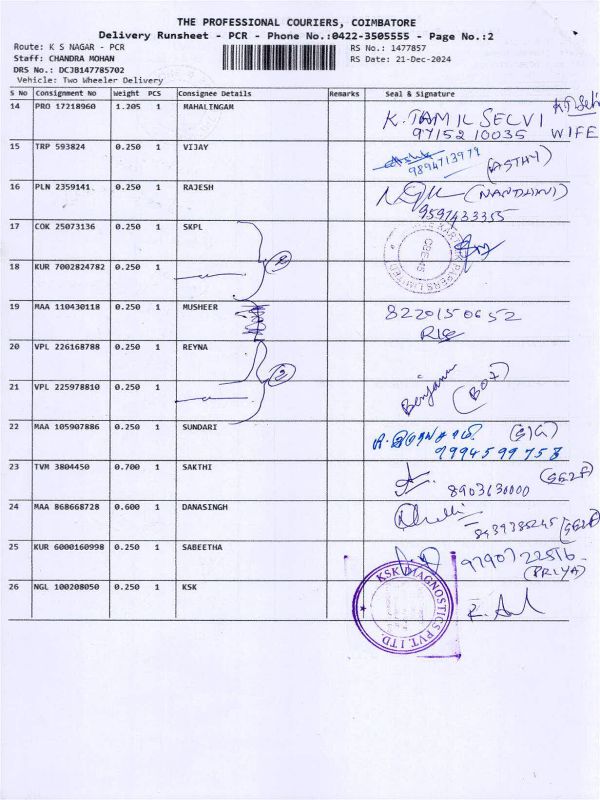 THE PROFESSIONAL COURIERS, COIMBATORE
Delivery Runsheet - PCR - Phone No.:0422-3505555 - Page No.:2
Route: K S NAGAR - PCR
RS No.: 1477857
Staff: CHANDRA MOHAN
RS Date: 21-Dec-2024
DRS No.: DCJB147785702
Vehicle: Two Wheeler Delivery
S No Consignment No Weight PCS Consignee Details Remarks Seal & Signature
14 PRO 17218960 1.205 1 MAHALINGAM K. TAMIL SELVI
9715210035 WIFE
15 TRP 593824 0.250 1 VIJAY
9894713979 (ASTHY)
16 PLN 2359141 0.250 1 RAJESH (NANDHINI)
9597433355
17 COK 25073136 0.250 1 SKPL
PAPERS LIMITED
CBE-45
18 KUR 7002824782 0.250 1
2
19 MAA 110430118 0.250 1 MUSHEER 8220150652
20 VPL 226168788 0.250 1 REYNA
2
21 VPL 225978810 0.250 1 Benjamin (BOI)
22 MAA 105907886 0.250 1 SUNDARI
9994599758
23 TVM 3804450 0.700 1 SAKTHI (SELF)
8903630000
24 MAA 868668728 0.600 1 DANASINGH
8939385245 (SELF)
25 KUR 6000160998 0.250 1 SABEETHA 9790722516
(PRIYA)
26 NGL 100208050 0.250 1 KSK
KSK DIAGNOSTICS PVT. LTD.